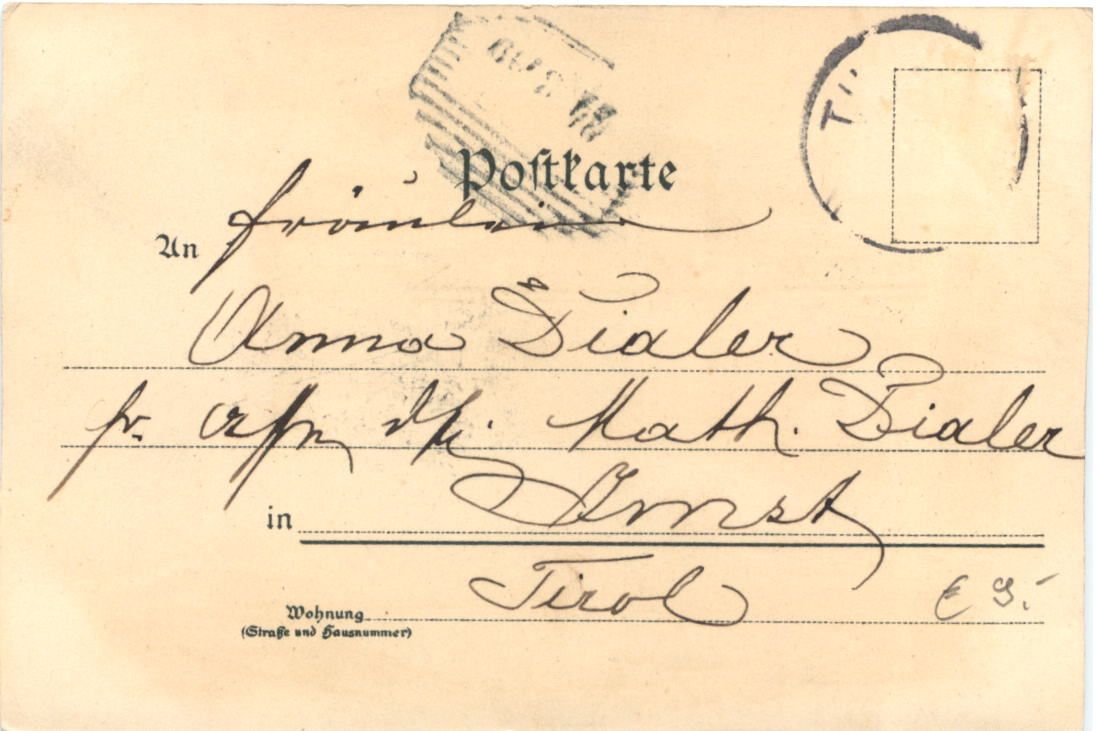 Postkarte
An Fräulein
Anna Dialer
Math. Dialer
in Imst
Tirol
€ 9.-
Wohnung
(Straße und Hausnummer)